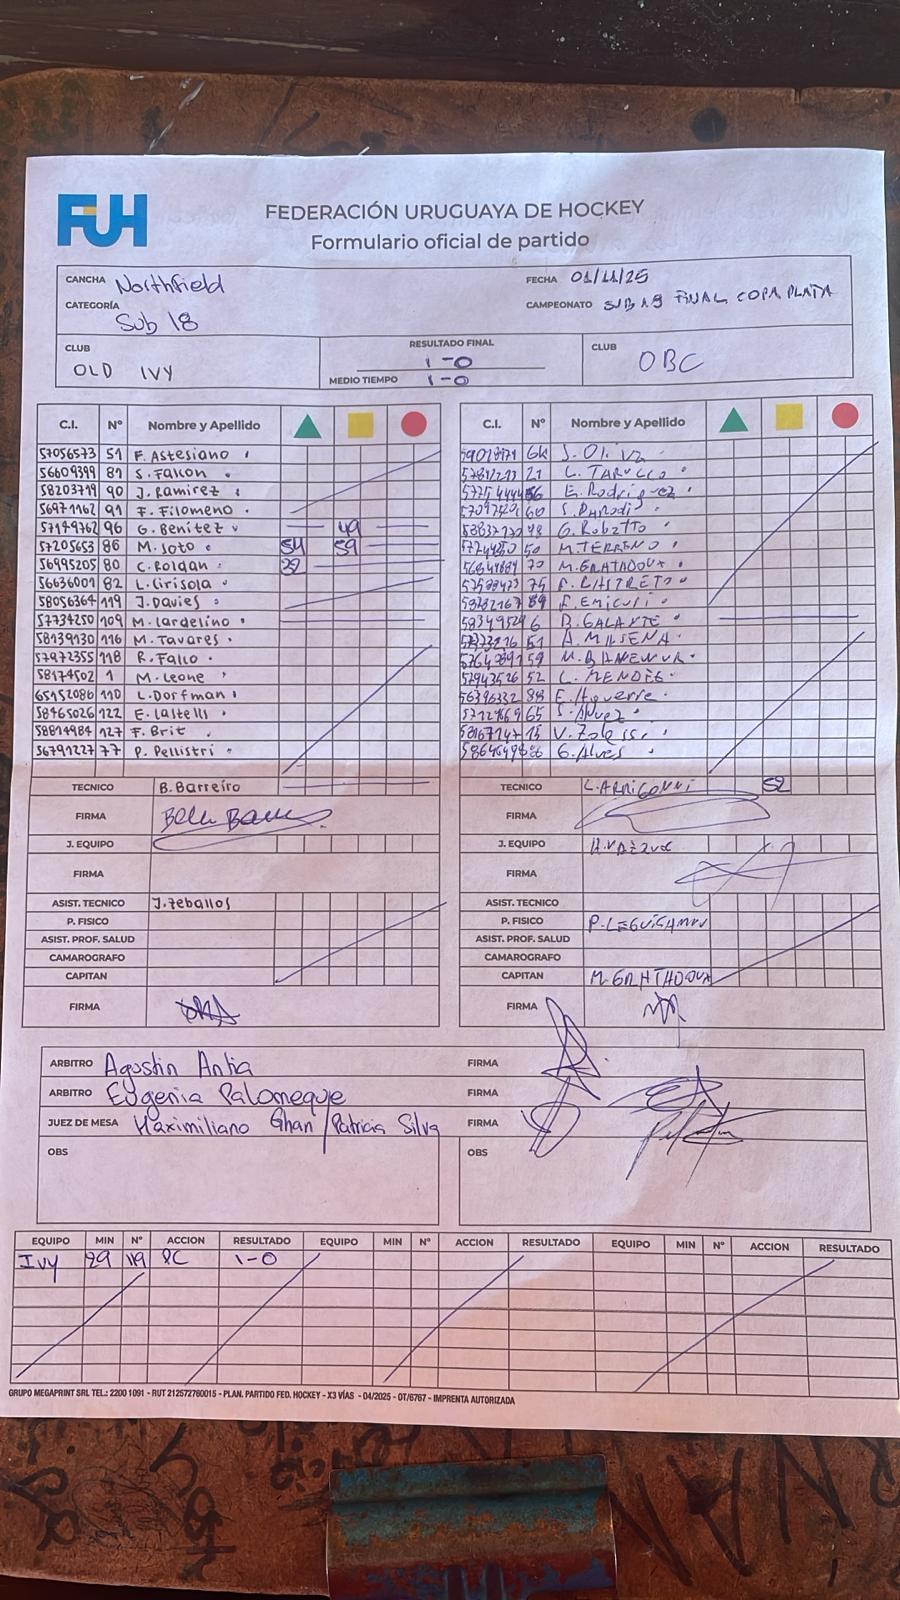 FUH
FEDERACIÓN URUGUAYA DE HOCKEY
Formulario oficial de partido
CANCHA Northfield
FECHA 01/11/25
CATEGORÍA Sub 18
CAMPEONATO SUB19 FINAL COPA PLATA
CLUB OLD IVY
RESULTADO FINAL 1-0
MEDIO TIEMPO 1-0
CLUB OBC
C.I. Nº Nombre y Apellido
57056573 51 F. Astesiano
56609399 81 S. Falkon
58203719 90 J. Ramirez
56971162 91 F. Filomeno
57149762 96 G. Benitez 49
57205653 86 M. Soto 54 59
56995205 80 C. Roldan 22
56636001 82 L. Cirisola
58056364 119 J. Davies
57734250 109 M. Lardelino
58139130 116 M. Tavares
57972355 118 R. Fallo
58174502 1 M. Leone
65152086 110 L. Dorfman
58465026 122 E. Castells
58814984 127 F. Brit
56791227 77 P. Pellistri
TECNICO B. Barreiro
FIRMA
J. EQUIPO
FIRMA
ASIST. TECNICO J. Zeballos
P. FISICO
ASIST. PROF. SALUD
CAMAROGRAFO
CAPITAN
FIRMA
C.I. Nº Nombre y Apellido
S. Oliva
21 C. TARULLO
E. Rodriguez
60 S. Parodi
G. Robatto
50 M. TERRENO
70 M. GRATADOUX
75
F. Emicuri
6 B. GALANTE
51
59
52 C. MENDES
88 E. Aguerre
65 S. Alvez
15
G. Alves
TECNICO C. ARRIGONNI 52
FIRMA
J. EQUIPO
FIRMA
ASIST. TECNICO
P. FISICO P. LEGUISAMON
ASIST. PROF. SALUD
CAMAROGRAFO
CAPITAN
FIRMA
ARBITRO Agustin Antia FIRMA
ARBITRO Eugenia Palomeque FIRMA
JUEZ DE MESA Maximiliano Ghan / Patricia Silva FIRMA
OBS OBS
EQUIPO MIN Nº ACCION RESULTADO EQUIPO MIN Nº ACCION RESULTADO EQUIPO MIN Nº ACCION RESULTADO
Ivy 29 119 PC 1-0
GRUPO MEGAPRINT SRL TEL.: 2200 1091 - RUT 212572760015 - PLAN. PARTIDO FED. HOCKEY - X3 VÍAS - 04/2025 - OT/6767 - IMPRENTA AUTORIZADA